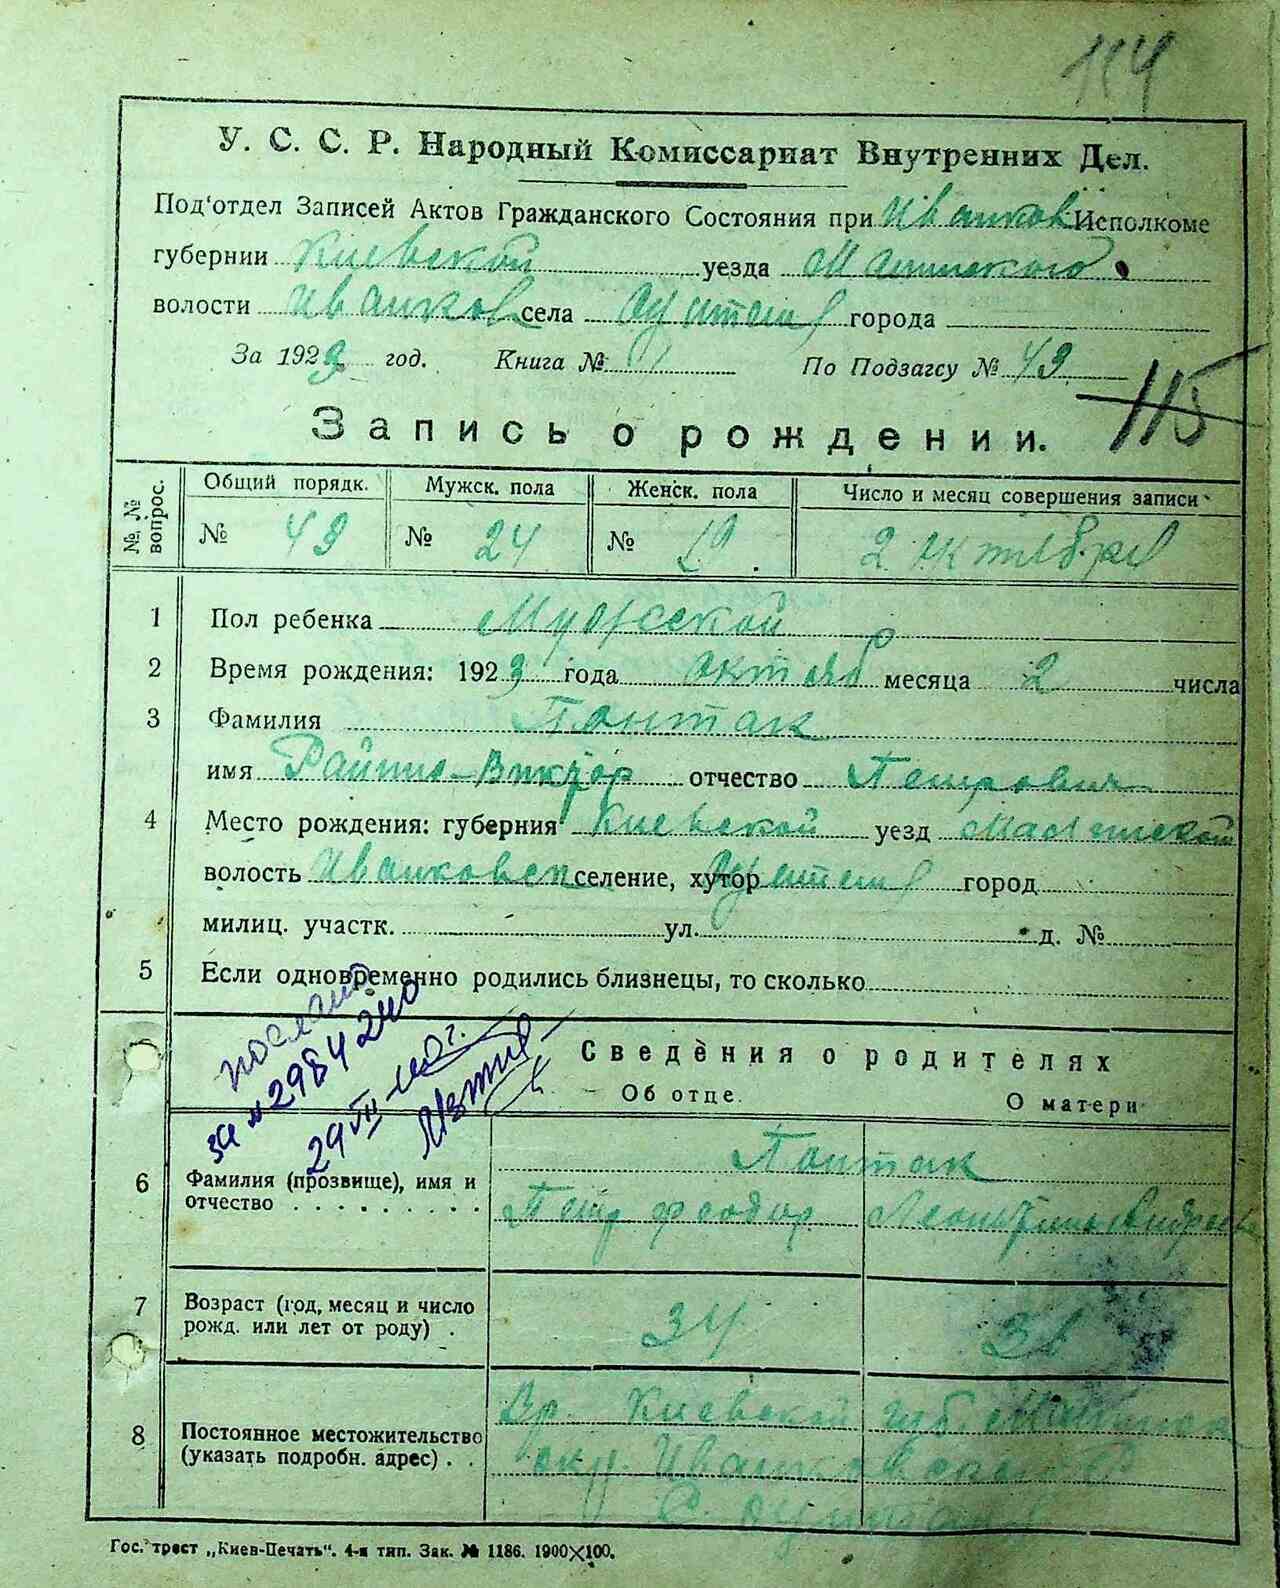 114
У. С. С. Р. Народный Комиссариат Внутренних Дел.
Под'отдел Записей Актов Гражданского Состояния при Иванков Исполкоме
губернии Киевской уезда
волости Иванков села города
За 1923 год. Книга № По Подзагсу № 43
115
Запись о рождении.
№. № вопрос. Общий порядк. Мужск. пола Женск. пола Число и месяц совершения записи
№ 43 № 24 № 19. 2 октября
1 Пол ребенка Мужской
2 Время рождения: 1923 года октяб месяца 2 числа
3 Фамилия Понтак
имя Райнис-Виктор отчество Петрович
4 Место рождения: губерния Киевской уезд
волость Иванковск селение, хутор город
милиц. участк. ул. д. №
5 Если одновременно родились близнецы, то сколько
послано
за № 2984240
29 VII
Сведения о родителях
Об отце. О матери
Понтак
6 Фамилия (прозвище), имя и
отчество Петр Феодор
7 Возраст (год, месяц и число
рожд. или лет от роду) . 34
Вр. Киевской губ
8 Постоянное местожительство
(указать подробн. адрес) . . окр.
С.
Гос. трест „Киев-Печать". 4-я тип. Зак. № 1186. 1900×100.